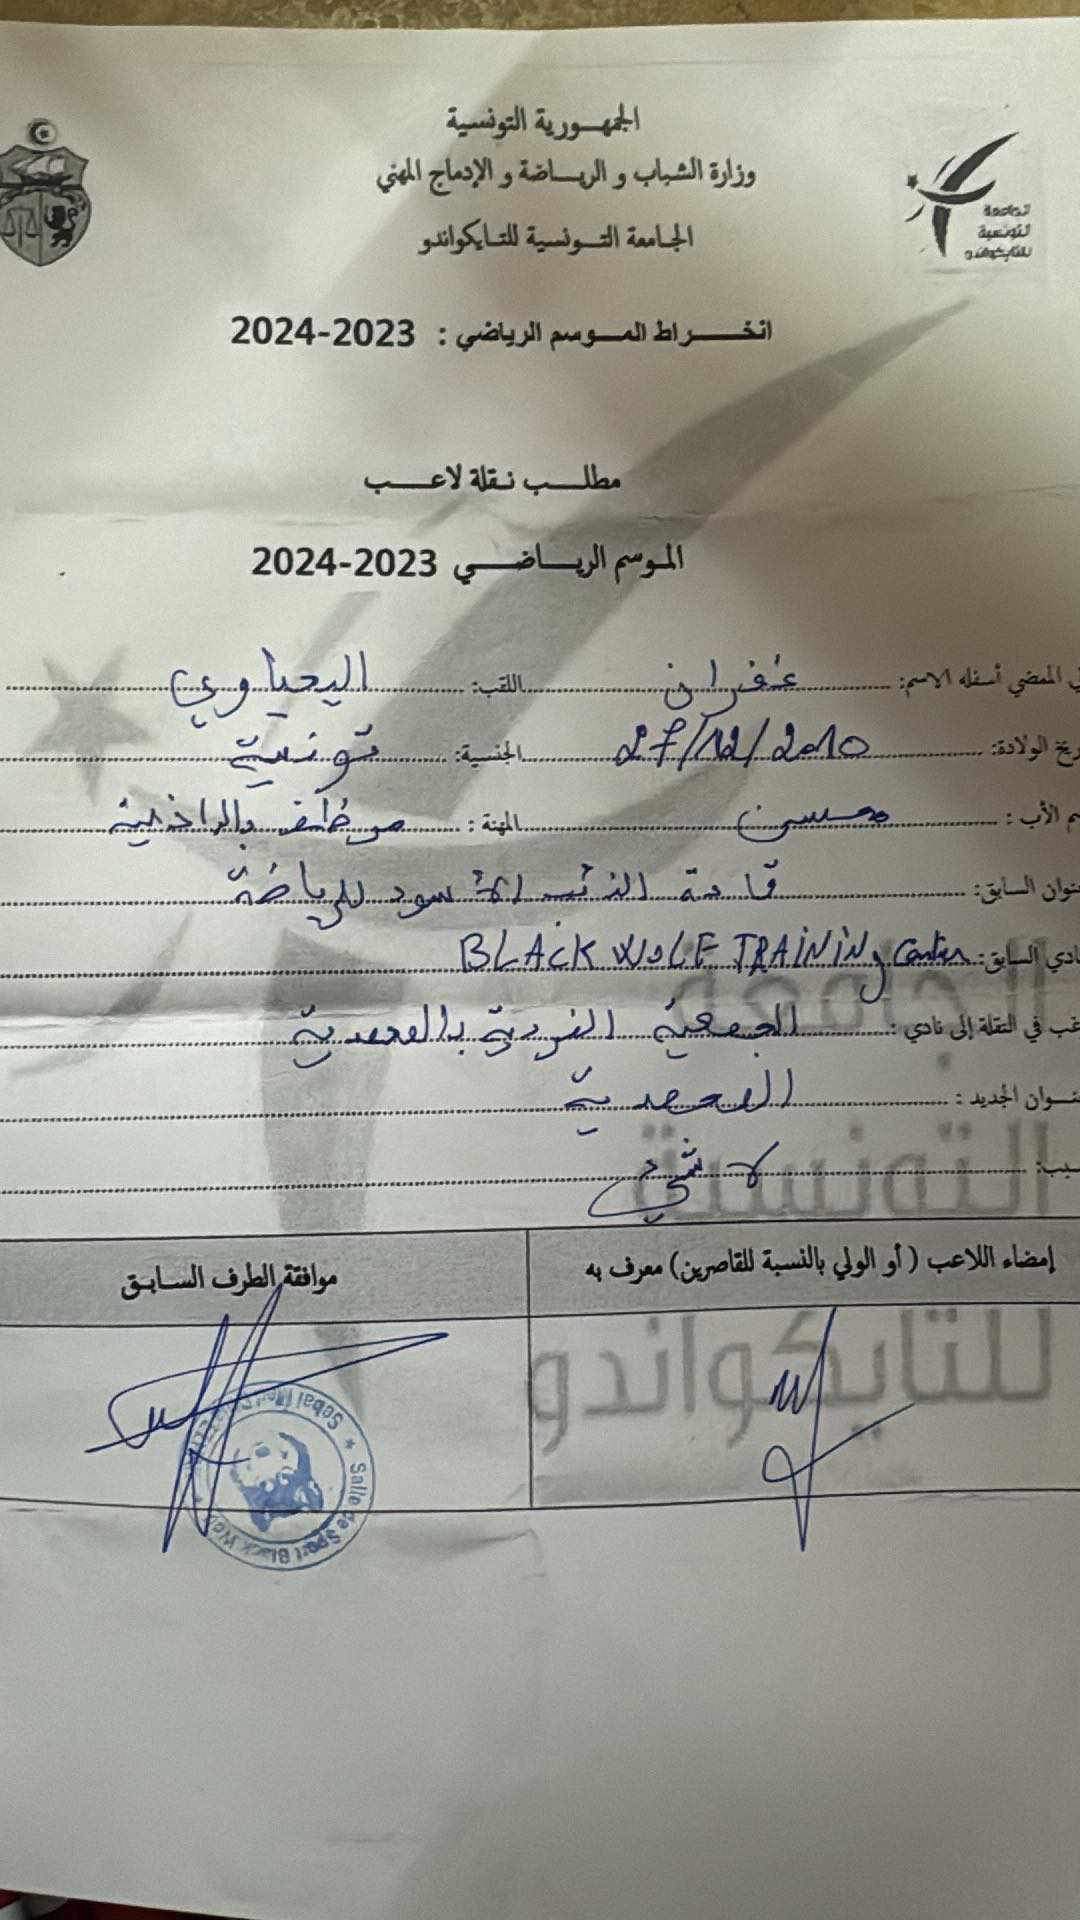 الجمهورية التونسية
وزارة الشباب و الرياضة و الإدماج المهني
الجامعة التونسية للتايكواندو
الجامعة
التونسية
للتايكواندو
انخراط الموسم الرياضي : 2023-2024
مطلب نقلة لاعب
الموسم الرياضي 2023-2024
ي الممضي أسفله الاسم: غفران اللقب: اليحياوي
ريخ الولادة: 27/12/2010 الجنسية: تونسية
م الأب : محسن المهنة : موظف بالداخلية
نوان السابق: قاعة الذئب الأسود للرياضة
ادي السابق: BLACK WOLF TRAINING Center
غب في النقلة إلى نادي : الجمعية الفردية بالمحمدية
نوان الجديد : المحمدية
سبب: لا شيء
إمضاء اللاعب ( أو الولي بالنسبة للقاصرين) معرف به
موافقة الطرف السابق
الجامعة
التونسية
للتايكواندو
Salle de Sport Black Wolf
Sebai